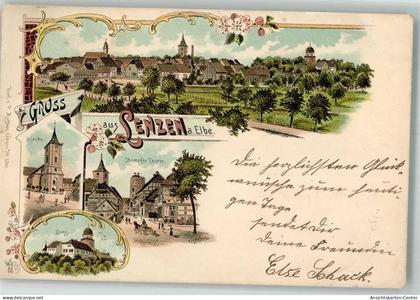 Gruss
aus
Lenzen a. Elbe.
Kirche
Stumpfer Thurm
Burg
Die herzlichsten Glück-
wünsche zum heuti-
gen Tage
sendet dir
deine Freundin
Else Schack.
www.ansichtskarten-center.de
Ansichtskarten-Center